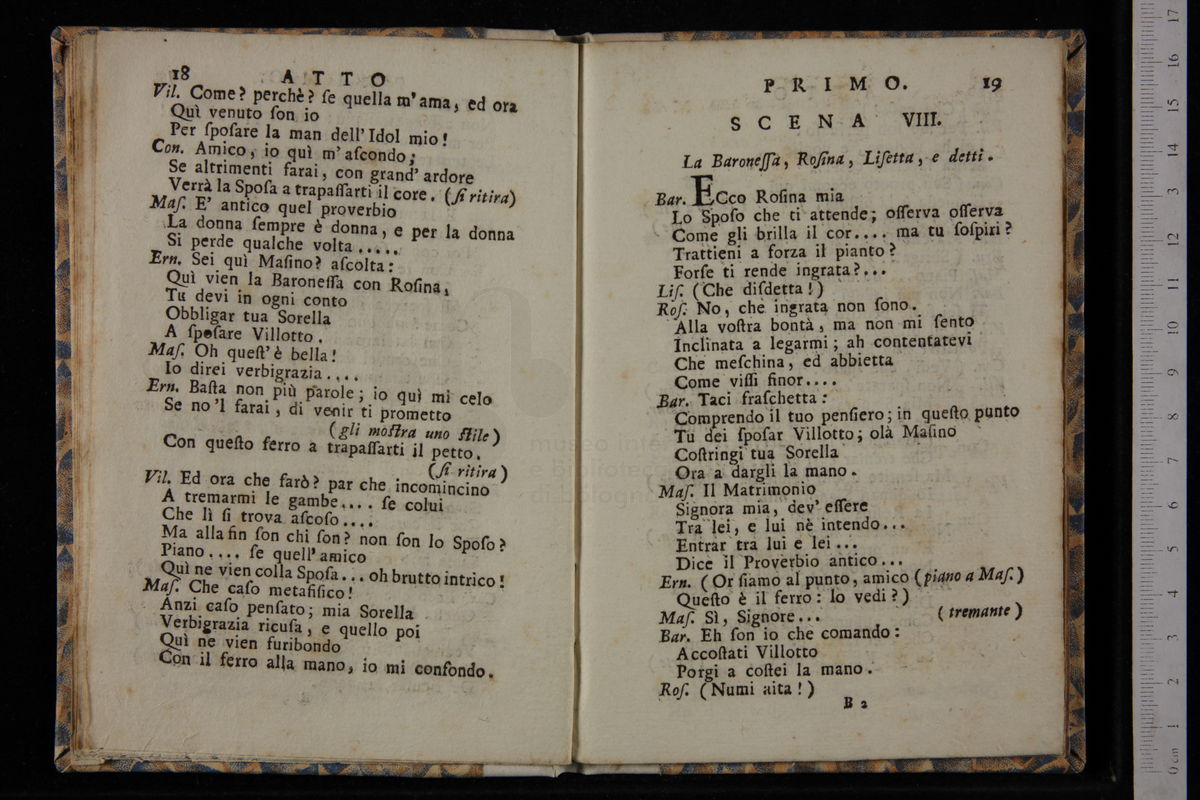 18 ATTO
Vil. Come? perchè? ſe quella m'ama, ed ora
Quì venuto ſon io
Per ſpoſare la man dell'Idol mio!
Con. Amico, io quì m'aſcondo;
Se altrimenti farai, con grand'ardore
Verrà la Spoſa a trapaſſarti il core. (ſi ritira)
Maſ. E' antico quel proverbio
La donna ſempre è donna, e per la donna
Si perde qualche volta .....
Ern. Sei quì Maſino? aſcolta:
Quì vien la Baroneſſa con Roſina,
Tu devi in ogni conto
Obbligar tua Sorella
A ſpoſare Villotto.
Maſ. Oh queſt'è bella!
Io direi verbigrazia....
Ern. Baſta non più parole; io quì mi celo
Se no'l farai, di venir ti prometto
(gli moſtra uno ſtile)
Con queſto ferro a trapaſſarti il petto.
(ſi ritira)
Vil. Ed ora che farò? par che incomincino
A tremarmi le gambe.... ſe colui
Che lì ſi trova aſcoſo....
Ma alla fin ſon chi ſon? non ſon lo Spoſo?
Piano.... ſe quell'amico
Quì ne vien colla Spoſa... oh brutto intrico!
Maſ. Che caſo metafiſico!
Anzi caſo penſato; mia Sorella
Verbigrazia ricuſa, e quello poi
Quì ne vien furibondo
Con il ferro alla mano, io mi confondo.
PRIMO. 19
SCENA VIII.
La Baroneſſa, Roſina, Liſetta, e detti.
Bar. ECco Roſina mia
Lo Spoſo che ti attende; oſſerva oſſerva
Come gli brilla il cor.... ma tu ſoſpiri?
Trattieni a forza il pianto?
Forſe ti rende ingrata?...
Liſ. (Che diſdetta!)
Roſ. No, che ingrata non ſono.
Alla voſtra bontà, ma non mi ſento
Inclinata a legarmi; ah contentatevi
Che meſchina, ed abbietta
Come viſſi finor....
Bar. Taci fraſchetta:
Comprendo il tuo penſiero; in queſto punto
Tu dei ſpoſar Villotto; olà Maſino
Coſtringi tua Sorella
Ora a dargli la mano.
Maſ. Il Matrimonio
Signora mia, dev'eſſere
Tra lei, e lui nè intendo...
Entrar tra lui e lei...
Dice il Proverbio antico...
Ern. (Or ſiamo al punto, amico (piano a Maſ.)
Queſto è il ferro: lo vedi?)
Maſ. Sì, Signore... (tremante)
Bar. Eh ſon io che comando:
Accoſtati Villotto
Porgi a coſtei la mano.
Roſ. (Numi aita!)
B 2